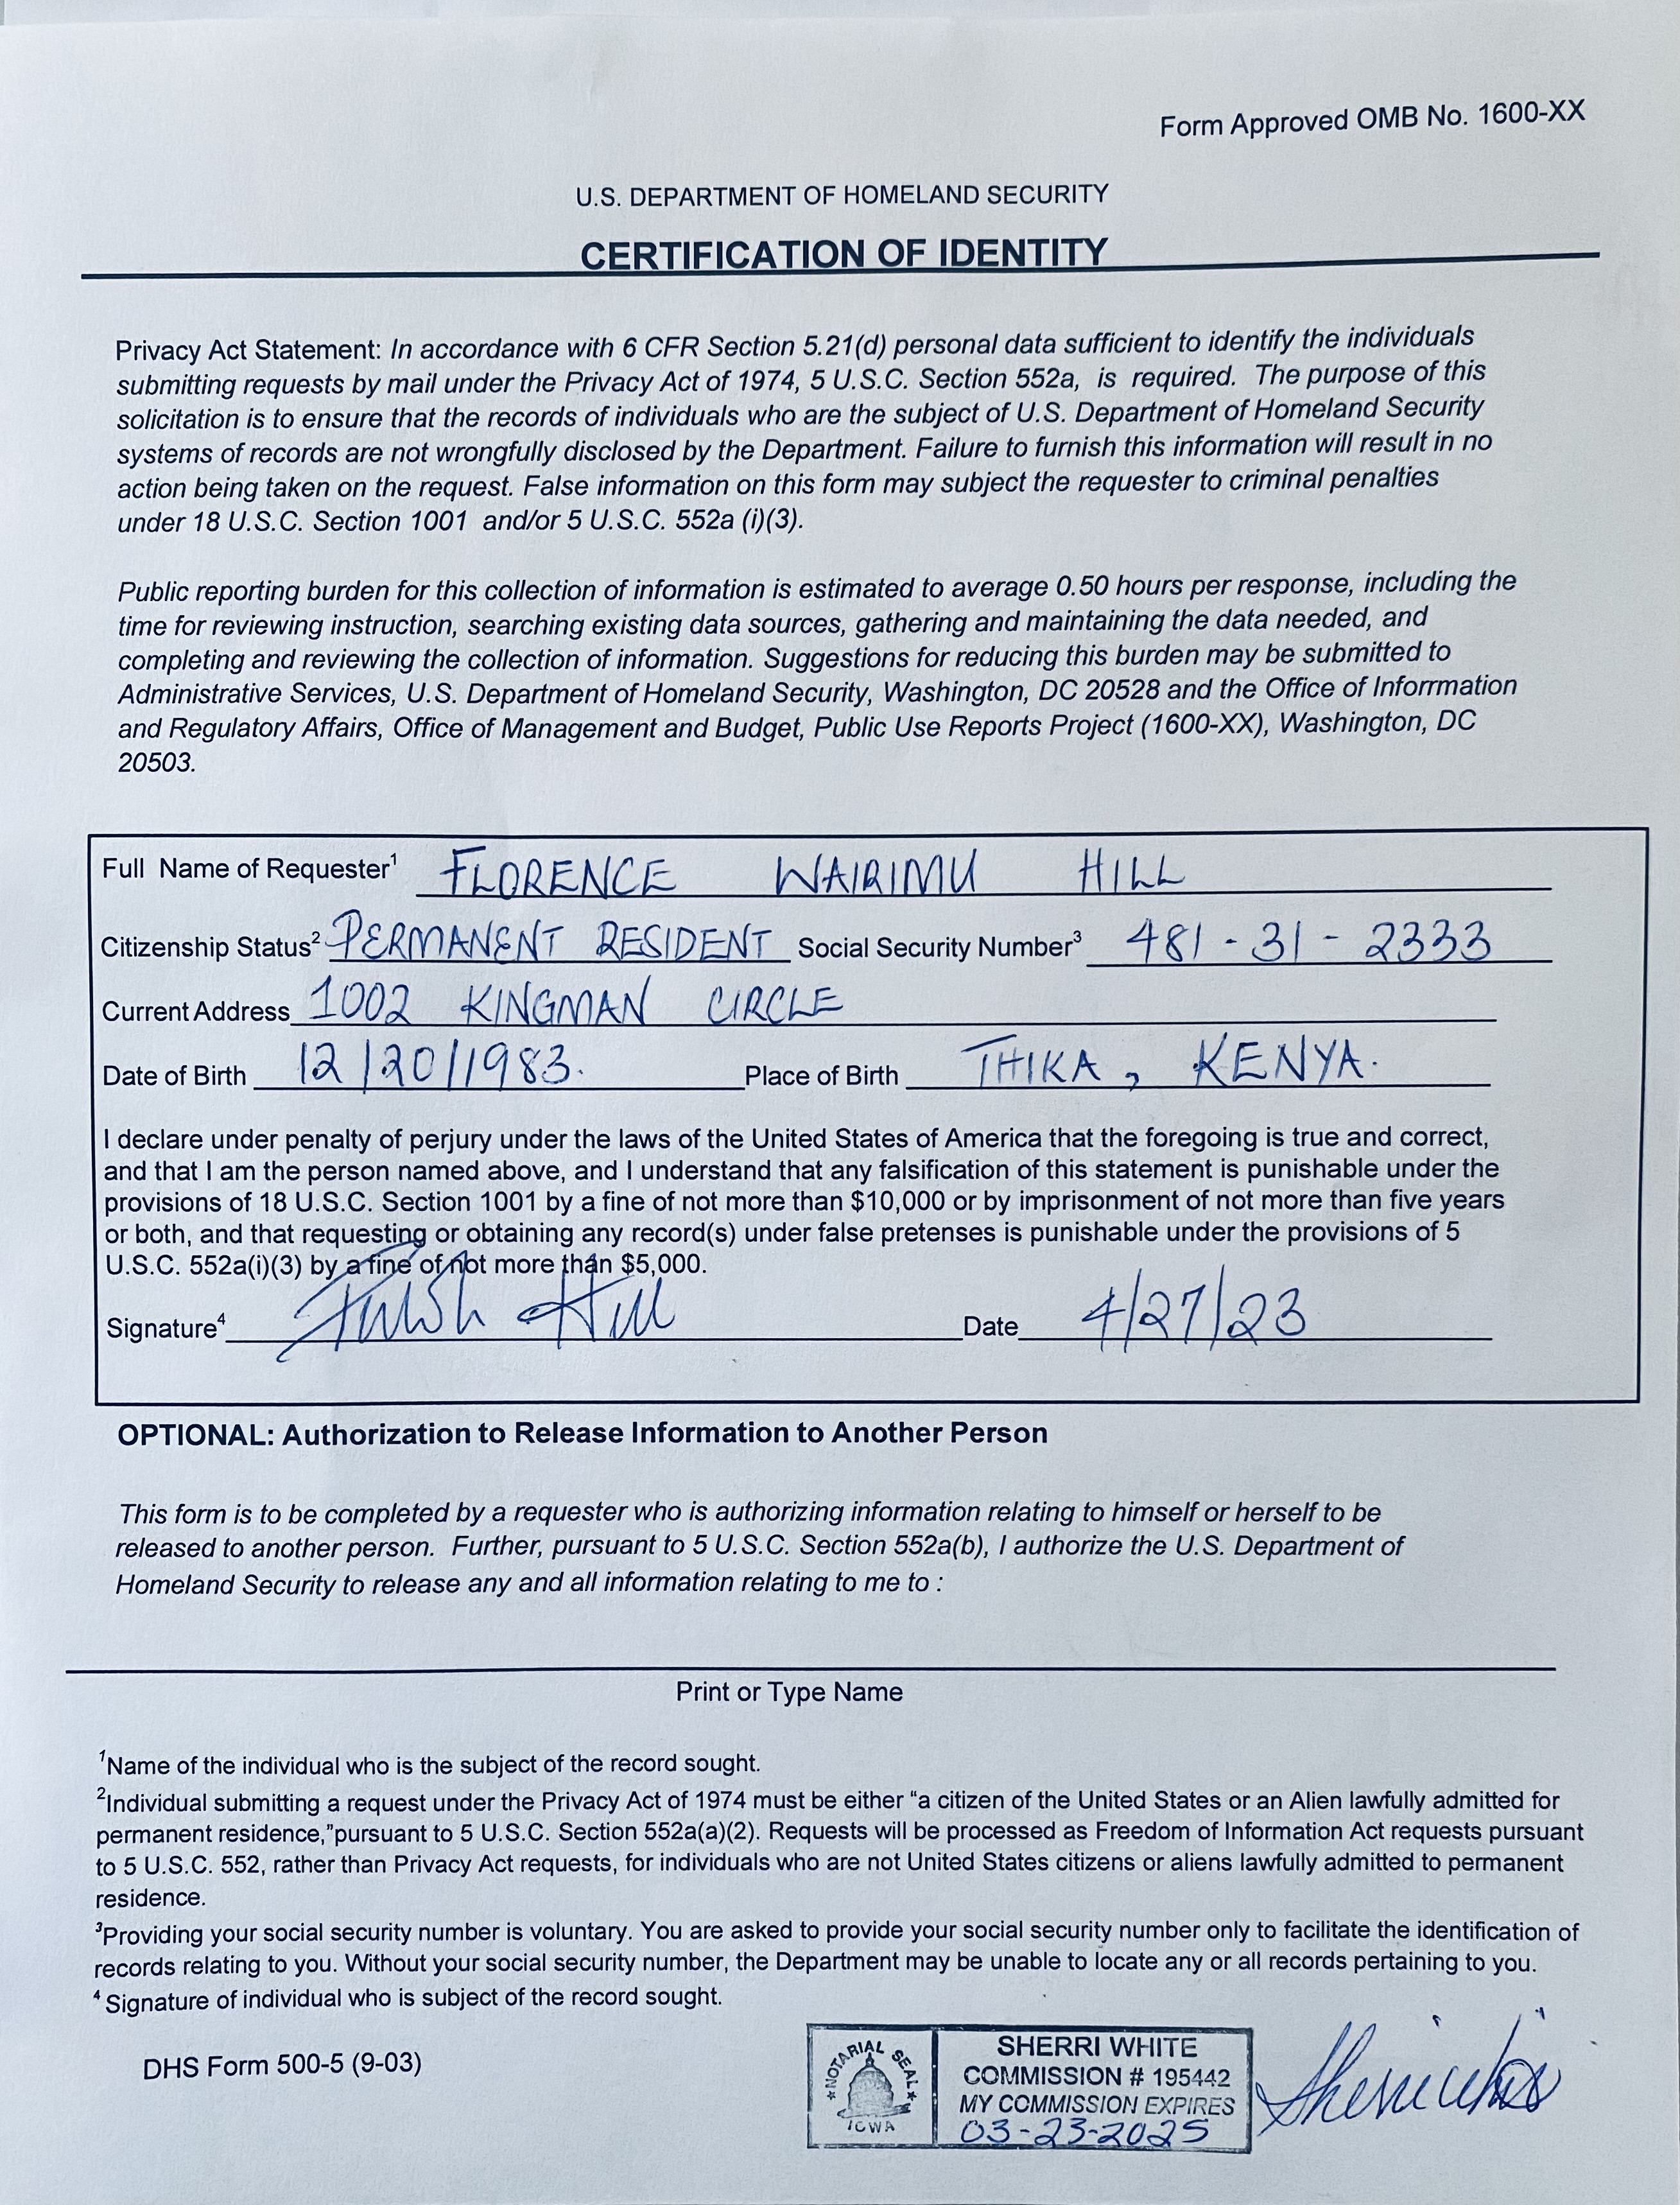 Form Approved OMB No. 1600-XX
U.S. DEPARTMENT OF HOMELAND SECURITY
CERTIFICATION OF IDENTITY
Privacy Act Statement: In accordance with 6 CFR Section 5.21(d) personal data sufficient to identify the individuals
submitting requests by mail under the Privacy Act of 1974, 5 U.S.C. Section 552a, is required. The purpose of this
solicitation is to ensure that the records of individuals who are the subject of U.S. Department of Homeland Security
systems of records are not wrongfully disclosed by the Department. Failure to furnish this information will result in no
action being taken on the request. False information on this form may subject the requester to criminal penalties
under 18 U.S.C. Section 1001 and/or 5 U.S.C. 552a (i)(3).
Public reporting burden for this collection of information is estimated to average 0.50 hours per response, including the
time for reviewing instruction, searching existing data sources, gathering and maintaining the data needed, and
completing and reviewing the collection of information. Suggestions for reducing this burden may be submitted to
Administrative Services, U.S. Department of Homeland Security, Washington, DC 20528 and the Office of Inforrmation
and Regulatory Affairs, Office of Management and Budget, Public Use Reports Project (1600-XX), Washington, DC
20503.
Full Name of Requester1 FLORENCE WAIRIMU HILL
Citizenship Status2 PERMANENT RESIDENT Social Security Number3 481-31-2333
Current Address 1002 KINGMAN CIRCLE
Date of Birth 12/20/1983. Place of Birth THIKA, KENYA.
I declare under penalty of perjury under the laws of the United States of America that the foregoing is true and correct,
and that I am the person named above, and I understand that any falsification of this statement is punishable under the
provisions of 18 U.S.C. Section 1001 by a fine of not more than $10,000 or by imprisonment of not more than five years
or both, and that requesting or obtaining any record(s) under false pretenses is punishable under the provisions of 5
U.S.C. 552a(i)(3) by a fine of not more than $5,000.
Signature4 Hill Date 4/27/23
OPTIONAL: Authorization to Release Information to Another Person
This form is to be completed by a requester who is authorizing information relating to himself or herself to be
released to another person. Further, pursuant to 5 U.S.C. Section 552a(b), I authorize the U.S. Department of
Homeland Security to release any and all information relating to me to :
Print or Type Name
1Name of the individual who is the subject of the record sought.
2Individual submitting a request under the Privacy Act of 1974 must be either “a citizen of the United States or an Alien lawfully admitted for
permanent residence,”pursuant to 5 U.S.C. Section 552a(a)(2). Requests will be processed as Freedom of Information Act requests pursuant
to 5 U.S.C. 552, rather than Privacy Act requests, for individuals who are not United States citizens or aliens lawfully admitted to permanent
residence.
3Providing your social security number is voluntary. You are asked to provide your social security number only to facilitate the identification of
records relating to you. Without your social security number, the Department may be unable to locate any or all records pertaining to you.
4 Signature of individual who is subject of the record sought.
DHS Form 500-5 (9-03)
NOTARIAL SEAL
IOWA
SHERRI WHITE
COMMISSION # 195442
MY COMMISSION EXPIRES
03-23-2025